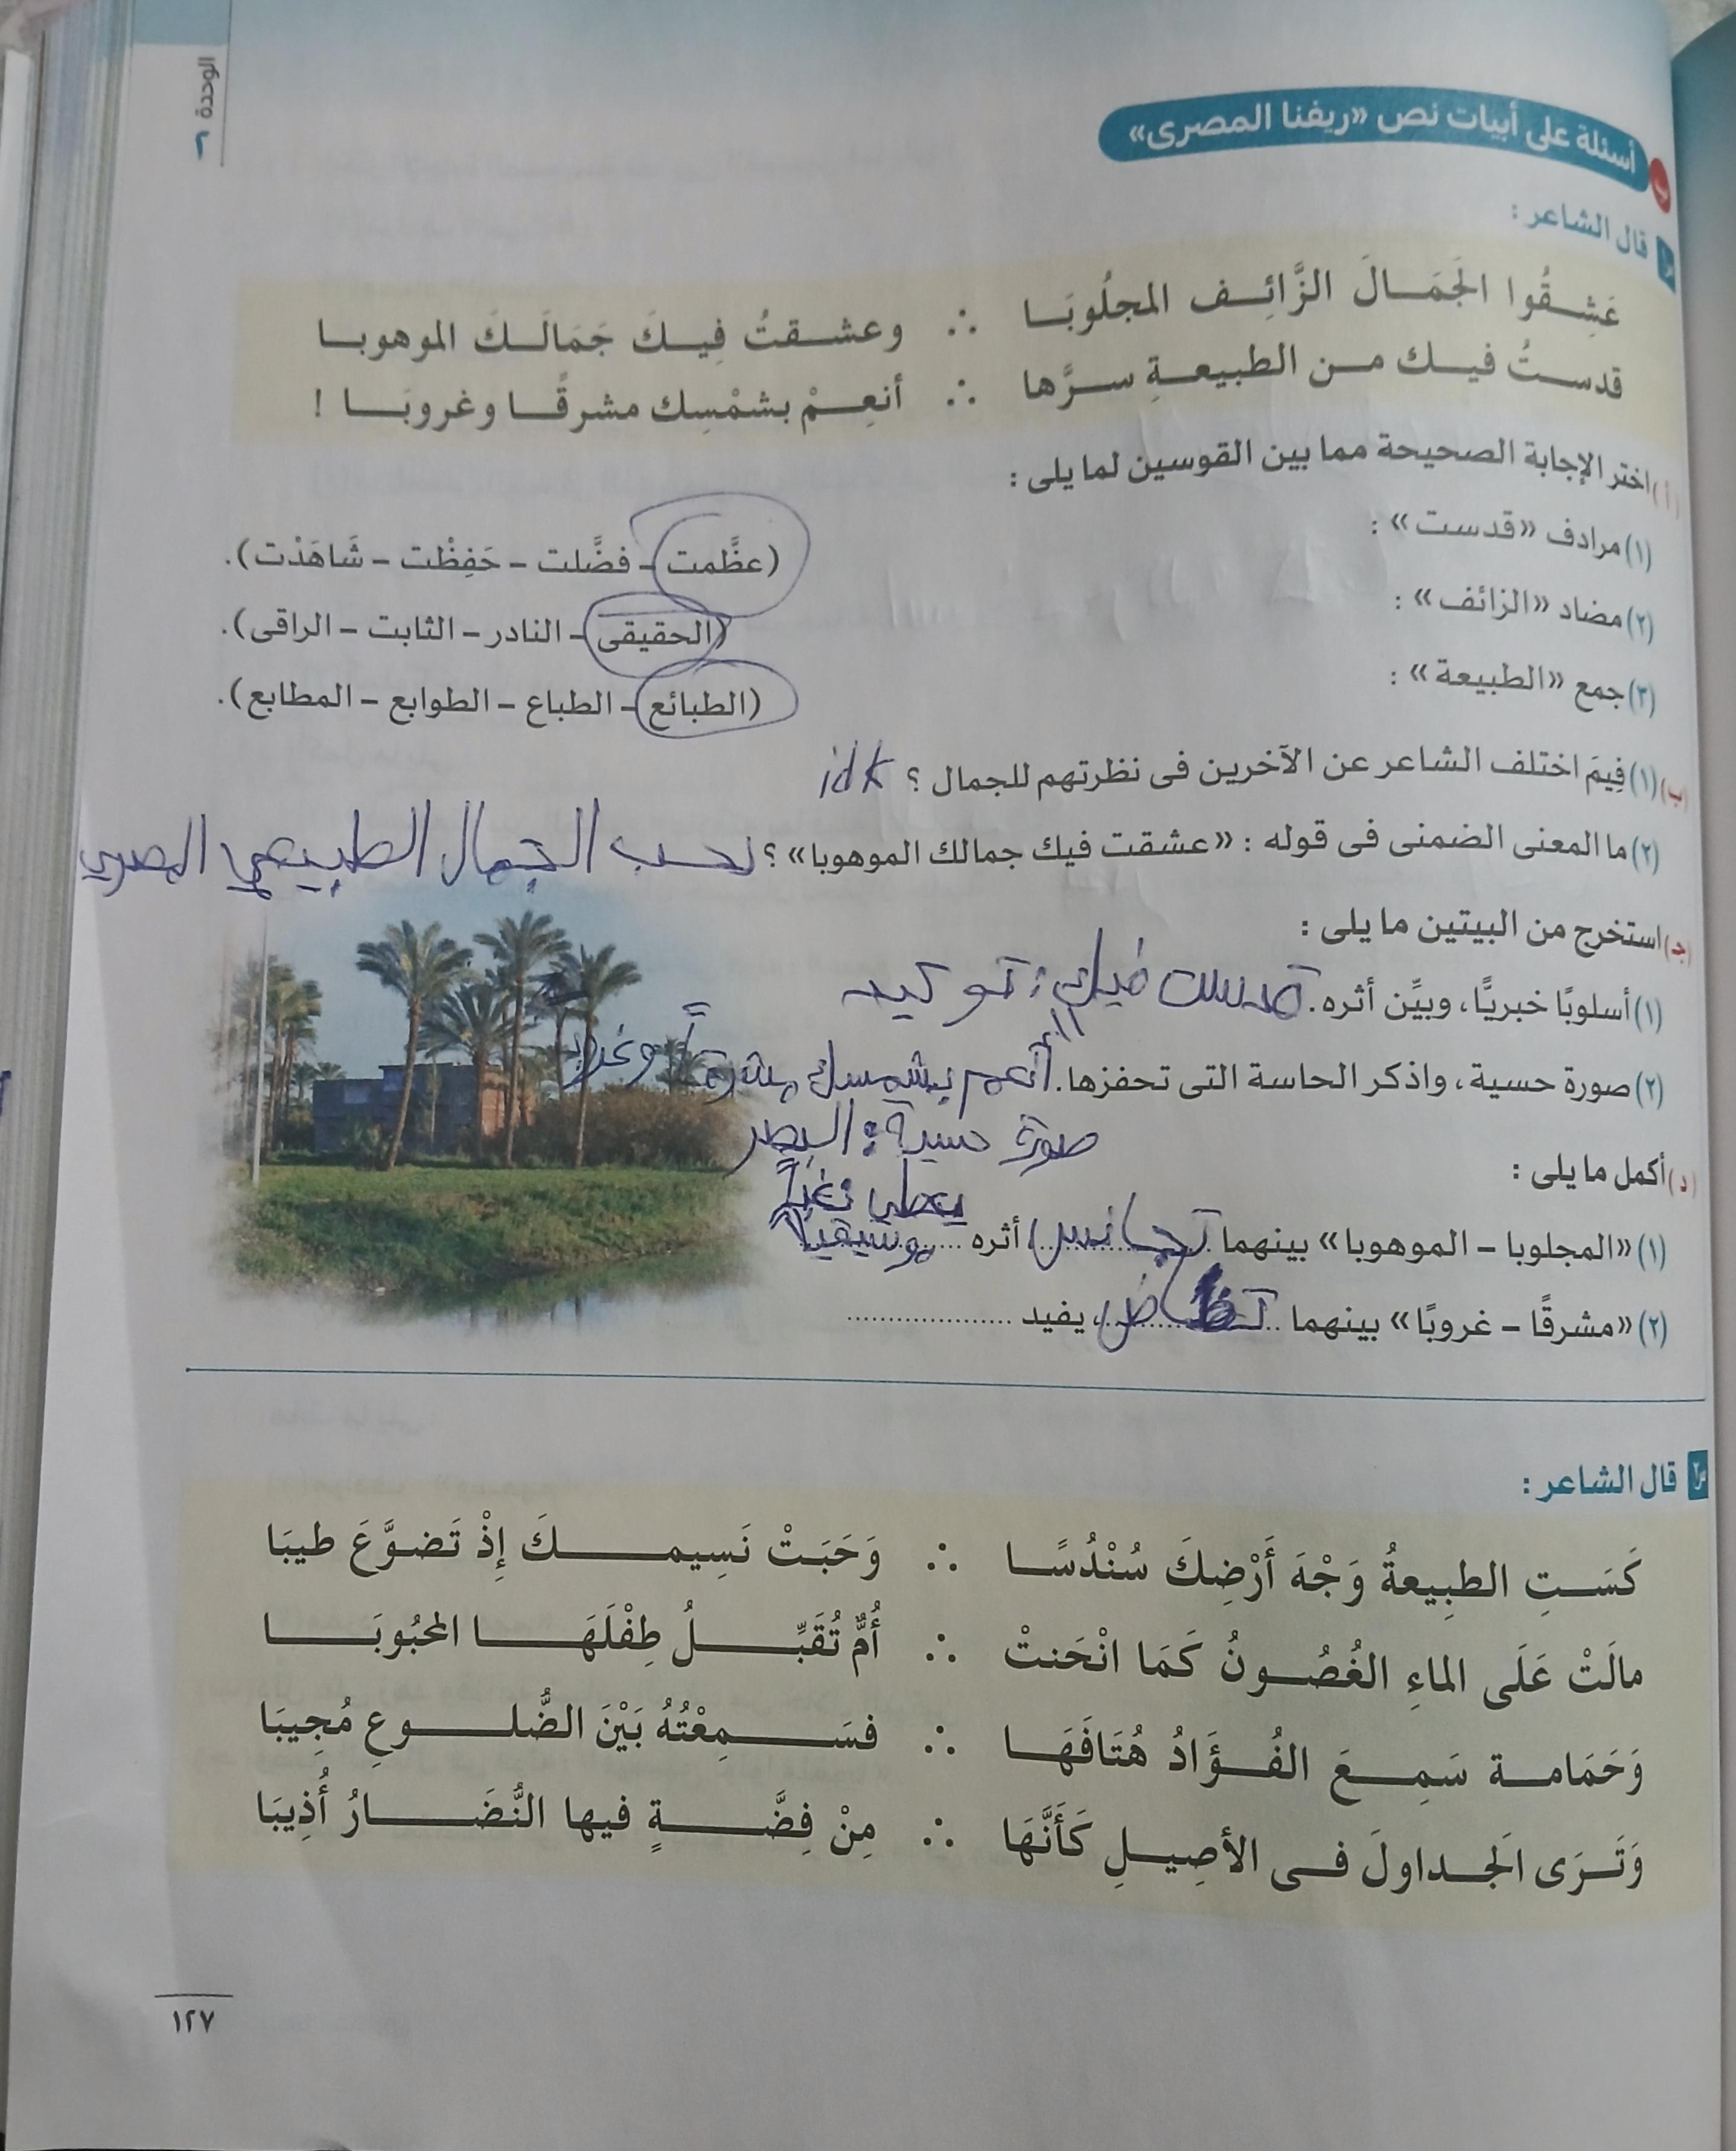 الوحدة ٢
ب أسئلة على أبيات نص «ريفنا المصرى»
س١ قال الشاعر :
عَشِقُوا الجَمَالَ الزَّائِف المجلُوبَا ∴ وعشقتُ فِيكَ جَمَالَكَ الموهوبا
قدستُ فيك من الطبيعةِ سرَّها ∴ أنعِمْ بشمْسِك مشرقًا وغروبَا !
(أ) اختر الإجابة الصحيحة مما بين القوسين لما يلى :
(١) مرادف «قدست» : (عظَّمت – فضَّلت – حَفِظْت – شَاهَدْت).
(٢) مضاد «الزائف» : (الحقيقى – النادر – الثابت – الراقى).
(٣) جمع «الطبيعة» : (الطبائع – الطباع – الطوابع – المطابع).
(ب) (١) فِيمَ اختلف الشاعر عن الآخرين فى نظرتهم للجمال ؟ idk
(٢) ما المعنى الضمنى فى قوله : «عشقت فيك جمالك الموهوبا» ؟ نحب الجمال الطبيعي المصري
(جـ) استخرج من البيتين ما يلى :
(١) أسلوبًا خبريًّا، وبيِّن أثره. قدست فيك : توكيد
(٢) صورة حسية، واذكر الحاسة التى تحفزها. "أنعم بشمسك مشرقاً وغروبا"
صورة حسية : البصر
(د) أكمل ما يلى :
يعطي نغماً
(١) «المجلوبا – الموهوبا» بينهما تجانس، أثره موسيقياً
(٢) «مشرقًا – غروبًا» بينهما ، يفيد ....................
س٢ قال الشاعر :
كَسَتِ الطبِيعةُ وَجْهَ أَرْضِكَ سُنْدُسًا ∴ وَحَبَتْ نَسِيمكَ إِذْ تَضوَّعَ طيبَا
مالَتْ عَلَى الماءِ الغُصُونُ كَمَا انْحَنتْ ∴ أُمٌّ تُقَبِّلُ طِفْلَهَا المحْبُوبَا
وَحَمَامة سَمِعَ الفُؤَادُ هُتَافَهَا ∴ فسَمِعْتُهُ بَيْنَ الضُّلوعِ مُجِيبَا
وَتَرَى الَجداولَ فى الأصِيلِ كَأَنَّهَا ∴ مِنْ فِضَّةٍ فيها النُّضَارُ أُذِيبَا
١٢٧